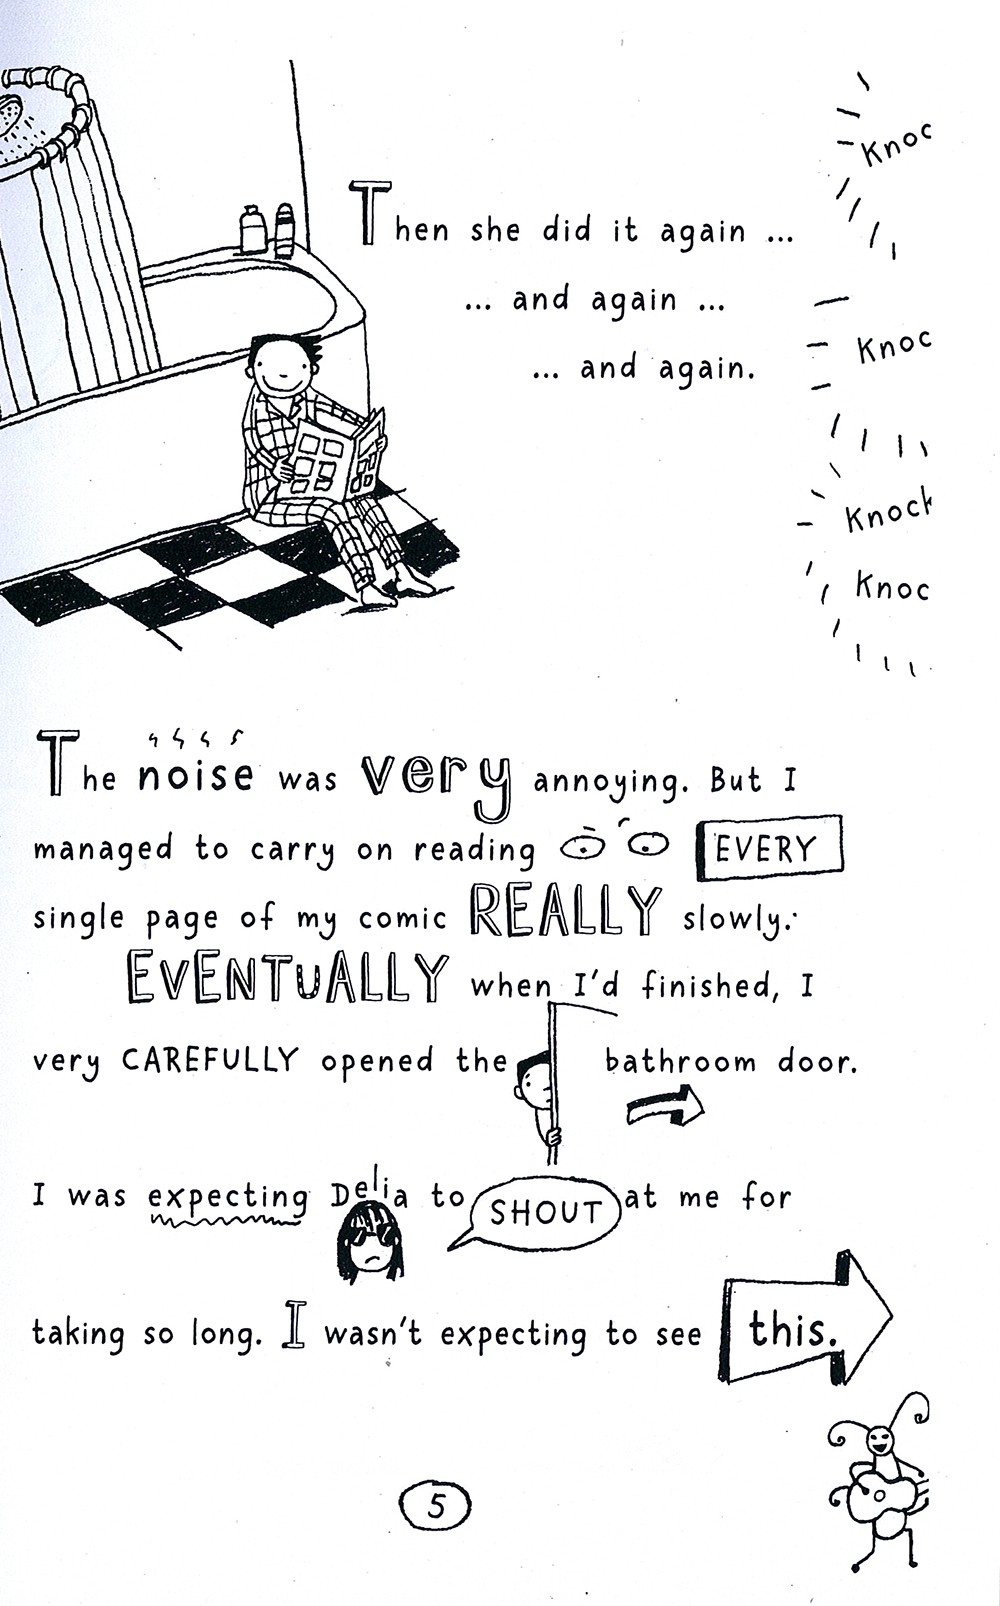 Then she did it again ...
... and again ...
... and again.
Knoc
Knoc
Knock
Knoc
The noise was very annoying. But I
managed to carry on reading EVERY
single page of my comic REALLY slowly.
EVENTUALLY when I'd finished, I
very CAREFULLY opened the bathroom door.
I was expecting Delia to SHOUT at me for
taking so long. I wasn't expecting to see this.
5